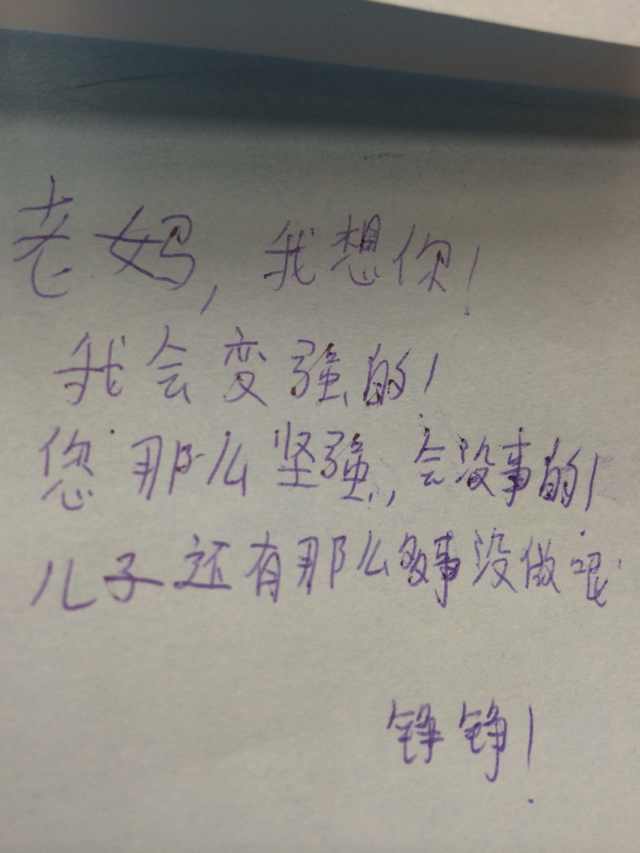 老妈,我想你!
我会变强的!
您那么坚强,会没事的!
儿子还有那么多事没做呢
铮铮!